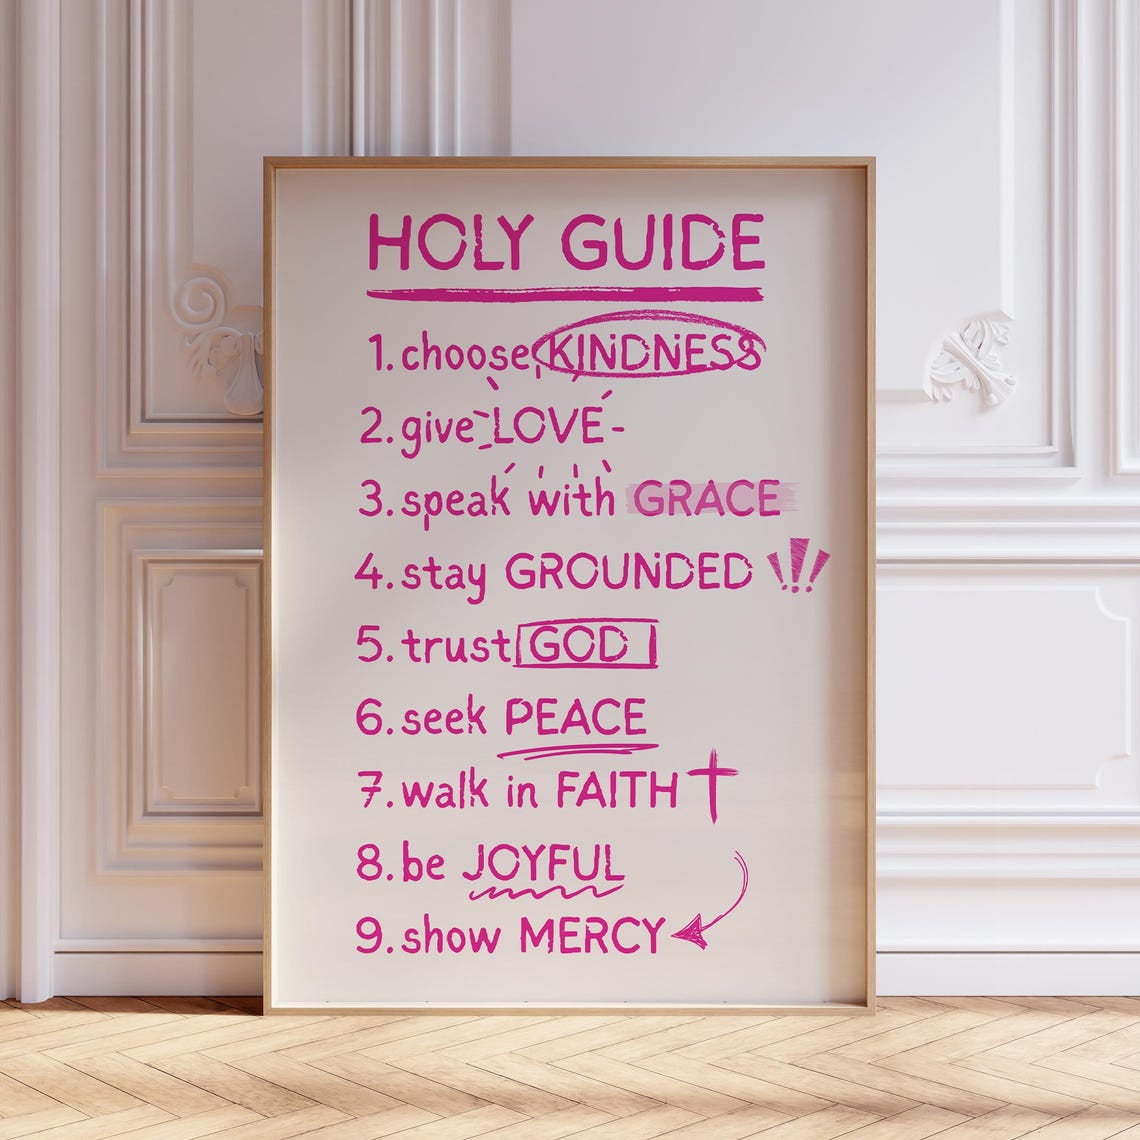 HOLY GUIDE
1. choose KINDNESS
2. give LOVE
3. speak with GRACE
4. stay GROUNDED !!!
5. trust GOD
6. seek PEACE
7. walk in FAITH
8. be JOYFUL
9. show MERCY